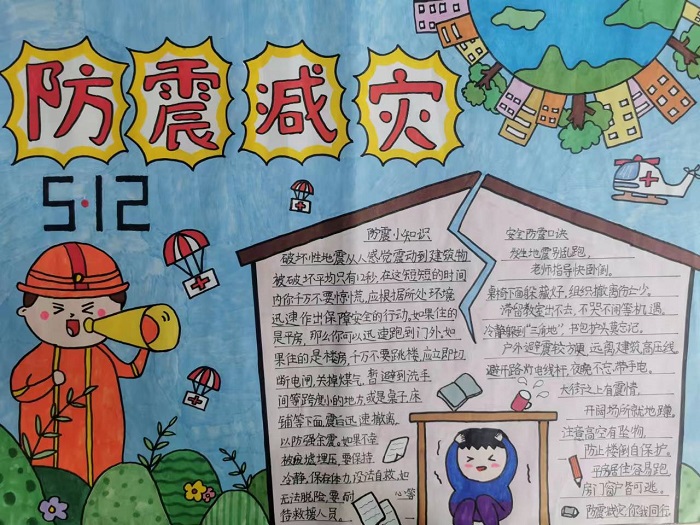 防震减灾
5·12
防震小知识
破坏性地震从人感觉震动到建筑物
被破坏平均只有12秒,在这短短的时间
内你千万不要惊慌,应根据所处环境
迅速作出保障安全的行动。如果住的
是平房,那么你可以迅速跑到门外。如
果住的是楼房,千万不要跳楼,应立即切
断电闸,关掉煤气,暂避到洗手
间等跨度小的地方,或是桌子,床
铺等下面,震后迅速撤离,
以防强余震。如果不幸
被废墟埋压,要保持
冷静,保存体力,设法自救,如
无法脱险,要耐心等
待救援人员。
安全防震口诀
发生地震别乱跑,
老师指导快卧倒。
桌椅下面躲藏好,组织撤离伤亡少。
滞留教室出不去,不哭不闹等机遇。
冷静躲到“三角地”,书包护头莫忘记。
户外避震较方便,远离建筑高压线。
避开路灯电线杆,夜晚不忘带手电。
大街之上有震情,
开阔场所就地蹲。
注意高空有坠物,
防止楼倒自保护。
平房居住容易跑,
房门窗户皆可逃。
防震减灾你我同行